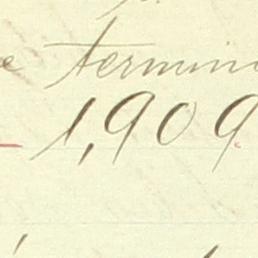 e termin
1,909